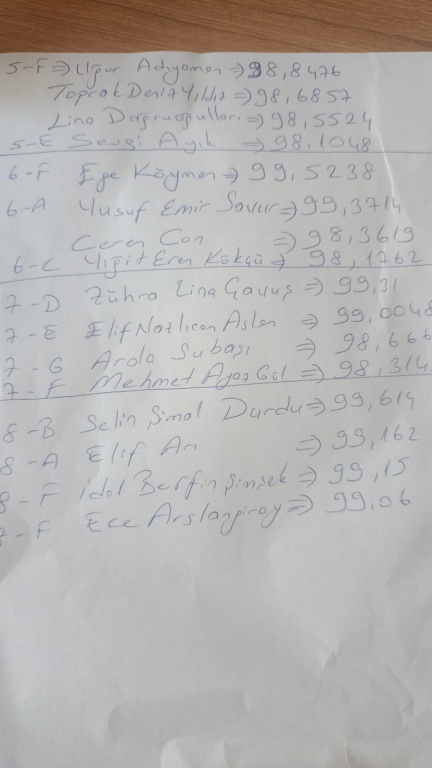 5-F => Uğur Adıyaman => 98,8476
Toprak Deniz Yıldız => 98,6857
Lina Doğruoğulları => 98,5524
5-E Sevgi Ayık => 98,1048
6-F Ege Köymen => 99,5238
6-A Yusuf Emir Savur => 99,3714
Ceren Can => 98,3619
6-C Yiğit Eren Kökçü => 98,1762
7-D Zühra Lina Çavuş => 99,31
7-E Elif Nazlıcan Aslan => 99,0048
7-G Arda Subaşı => 98,666
7-F Mehmet Ayaz Gül => 98,314
8-B Selin Şimal Durdu => 99,614
8-A Elif Arı => 99,162
8-F İdol Berfin Şimşek => 99,15
7-F Ece Arslanpiray => 99,06